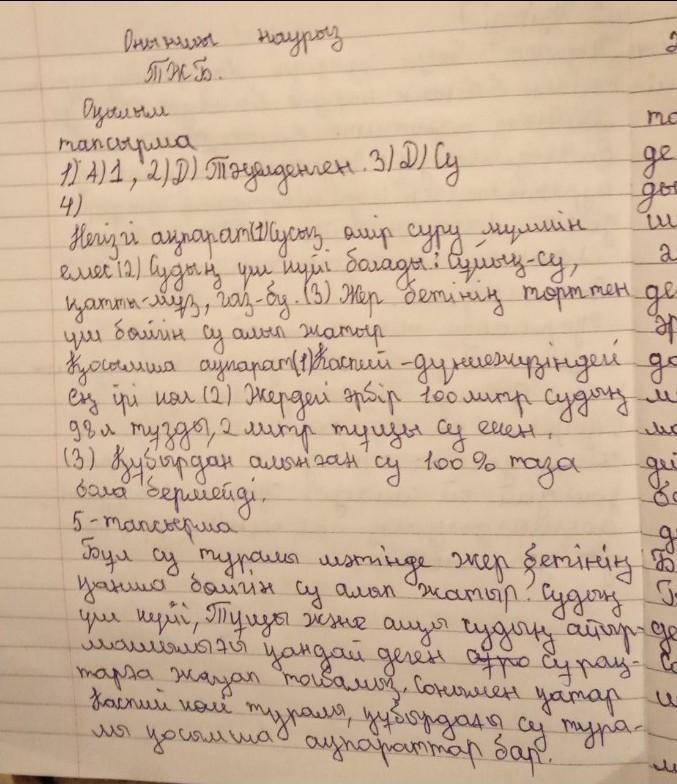 Оныншы наурыз
ТЖБ.
Оқылым
тапсырма
1) А) 1, 2) D) Тәуелденген. 3) D) Су
4)
Негізгі ақпарат (1) Сусыз өмір сүру мүмкін
емес (2) Судың үш күйі болады: Сұйық-су,
қатты-мұз, газ-бу. (3) Жер бетінің төрттен
үш бөлігін су алып жатыр
Қосымша ақпарат (1) Каспий - дүниежүзіндегі
ең ірі көл (2) Жердегі әрбір 100 литр судың
98 л тұзды, 2 литр тұщы су екен.
(3) Құбырдан алынған су 100% таза
бола бермейді.
5-тапсырма
Бұл су туралы мәтінде жер бетінің
қанша бөлігін су алып жатыр? Судың
үш күйі, Тұщы және ащы судың айыр-
машылығы қандай деген сұрақ-
тарға жауап табамыз. Сонымен қатар
Каспий көлі туралы, құбырдағы су тура-
лы қосымша ақпараттар бар.